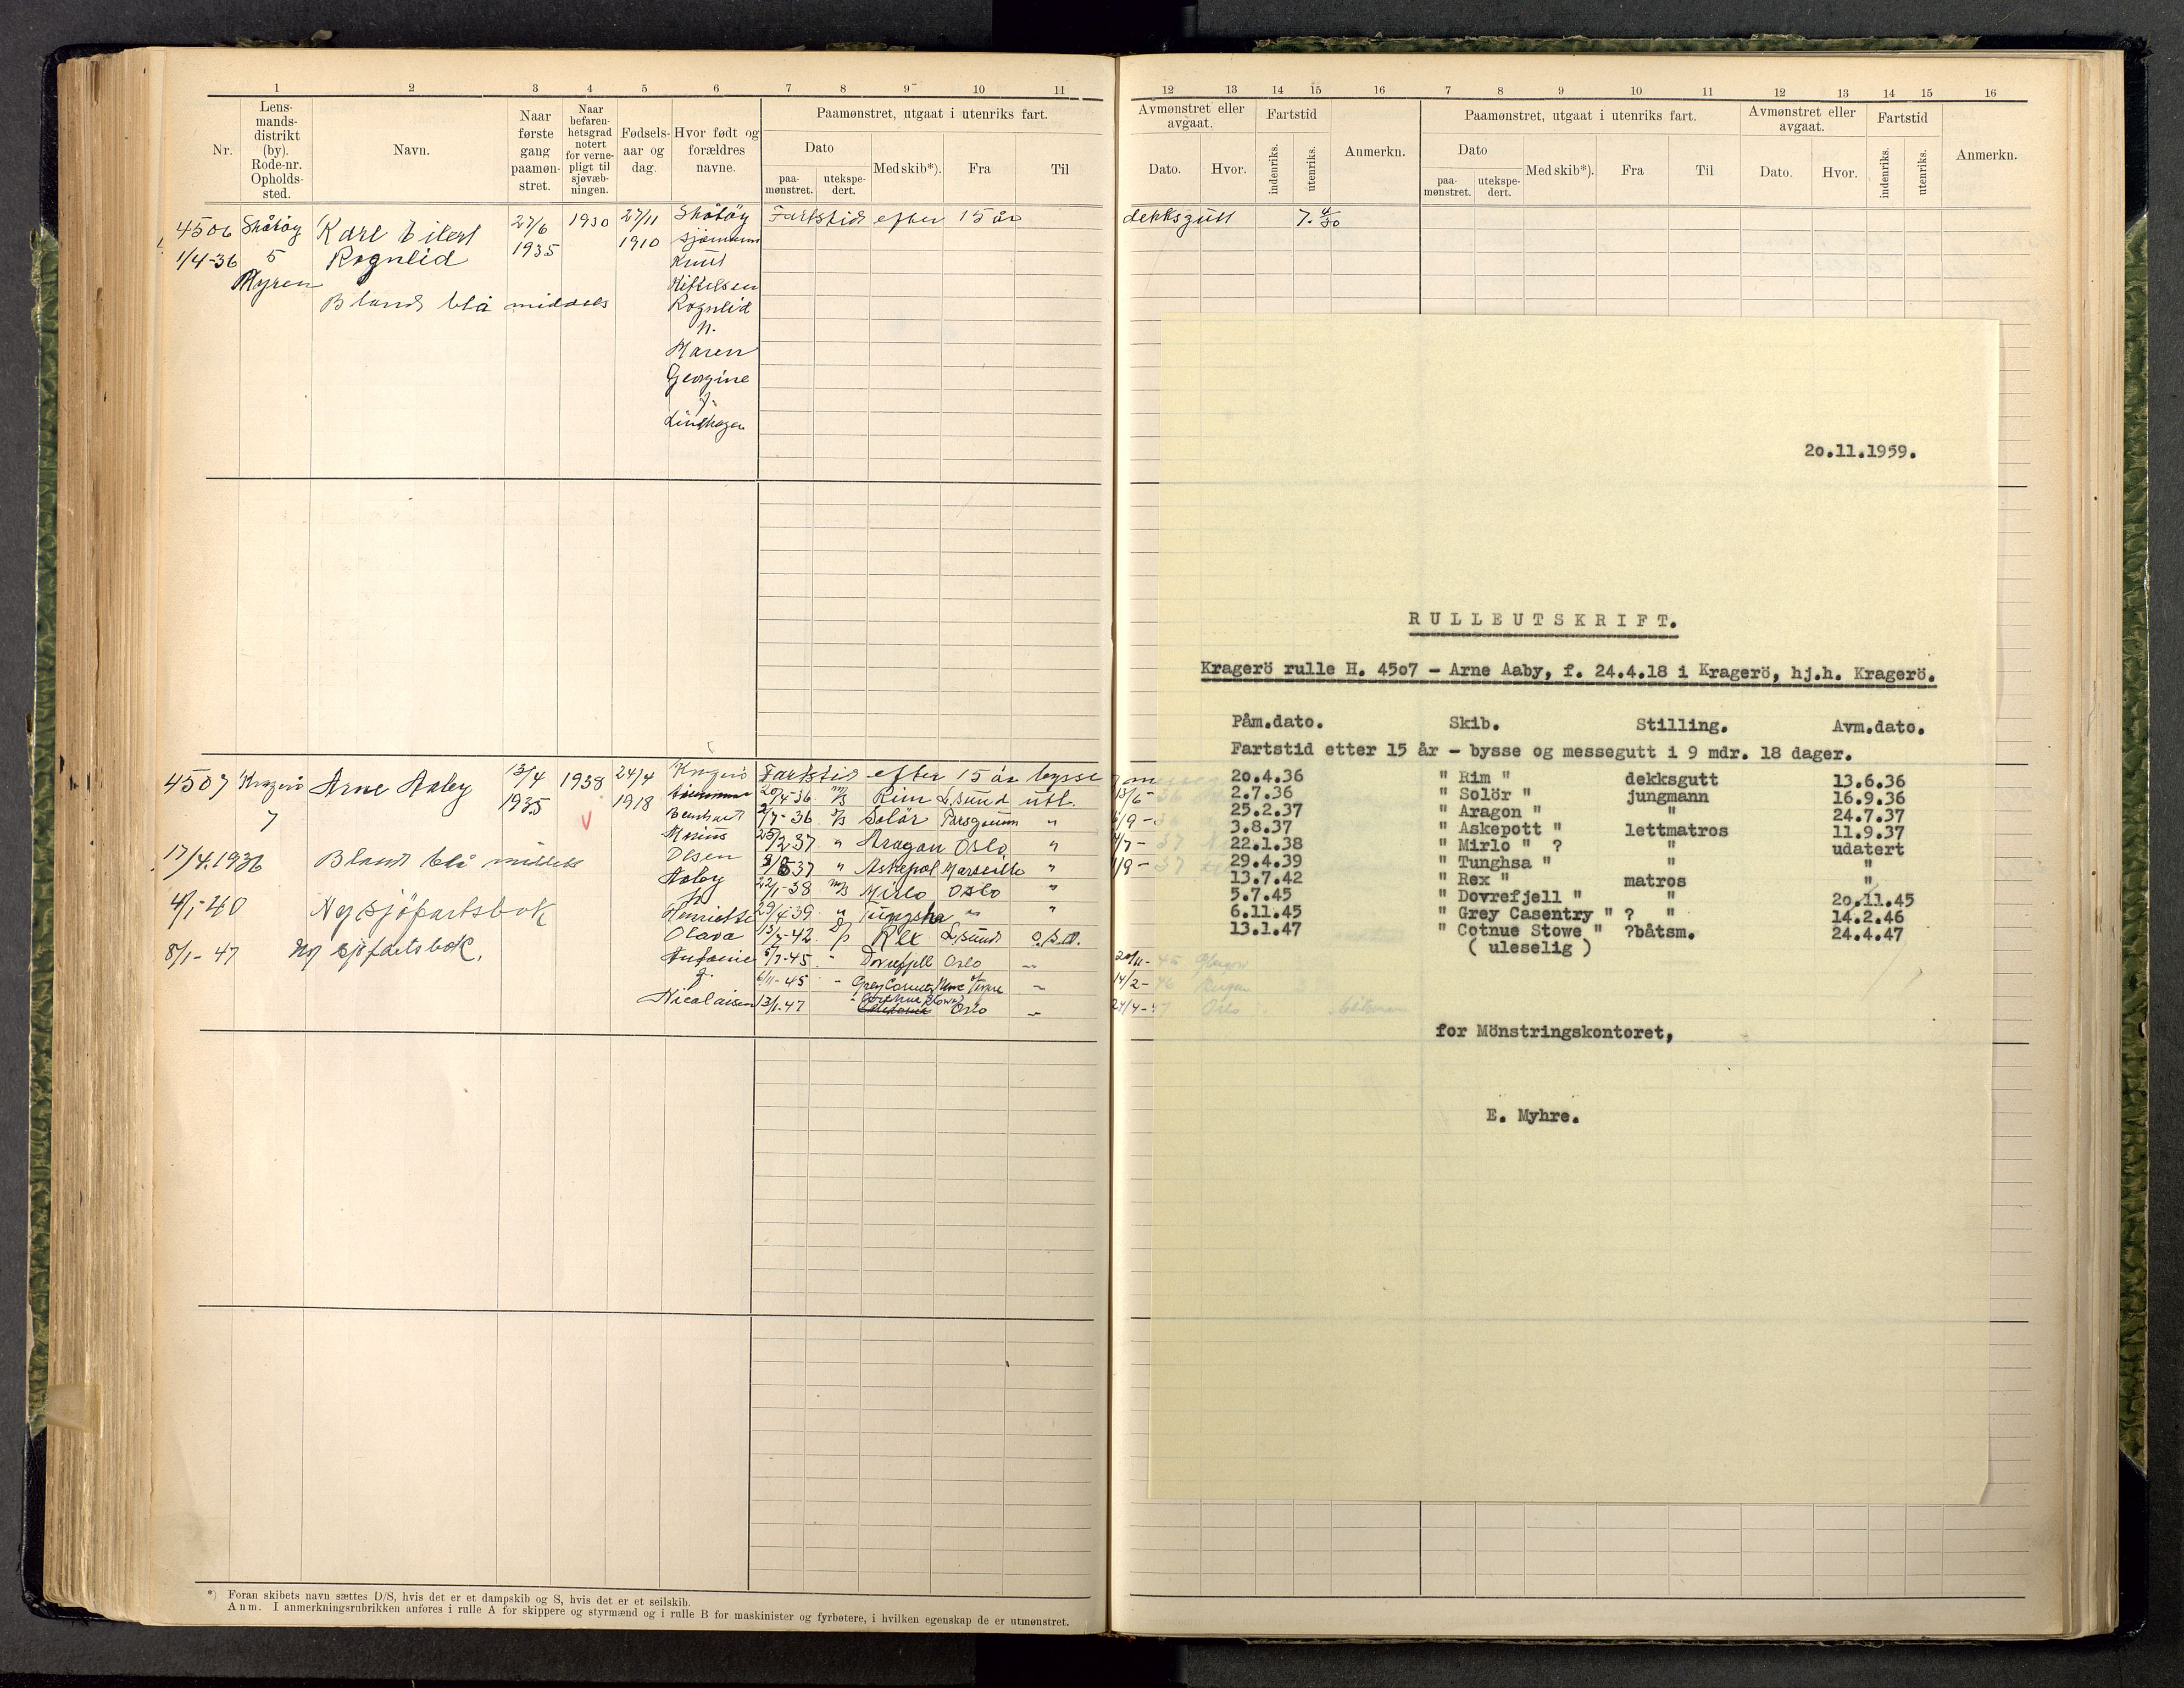 1 2 3 4 5 6 7 8 9 10 11
Nr.
Lens-
mands-
distrikt
(by).
Rode-nr.
Opholds-
sted.
Navn.
Naar
første
gang
paamøn-
stret.
Naar
befaren-
hetsgrad
notert
for verne-
pligt til
sjøvæb-
ningen.
Fødsels-
aar og
dag.
Hvor født og
forældres
navne.
Paamønstret, utgaat i utenriks fart.
Dato
paa-
mønstret.
utekspe-
dert.
Med skib*).
Fra
Til
4506
1/4-36
Skåtøy
5
Myren
Karl Eilert
Rognlid
Blond blå middels
27/6
1935
1930
27/11
1910
Skåtøy
sjømann
Knut
Kittelsen
Rognlid
h.
Maren
Georgine
f.
Lindhagen
Fartstid efter 15 år
4507
Kragerö
7
17/4.1936
Arne Aaby
Blond blå middels
4/1-40 Ny sjöfartsbok
8/1-47 Ny sjöfartsbok.
13/4
1935
1938
V
24/4
1918
Kragerö
Bernhart
Marius
Olsen
Aaby
h
Henriette
Olava
Antonie
f.
Nicolaisen
Fartstid efter 15 år bysse
20/4-36. m/s Rim L.sund utl.
2/7-36 s/s Solör Porsgrunn "
25/2 37 " Aragon Oslo "
3/8 37 " Askepot Marseille "
22/1-38 m/s Mirlo Oslo "
29/4 39 " Tungsha " "
13/7-42. D/s Rex L.sund o.s.v.
5/7-45 - Dovrefjell Oslo -
6/11-45 - Grey -
13/1.47 Oslo -
*) Foran skibets navn sættes D/S, hvis det er et dampskib og S, hvis det er et seilskib.
Anm. I anmerkningsrubrikken anføres i rulle A for skippere og styrmænd og i rulle B for maskinister og fyrbøtere, i hvilken egenskap de er utmønstret.
12 13 14 15 16 7 8 9 10 11 12 13 14 15 16
Avmønstret eller
avgaat.
Dato. Hvor.
Fartstid
indenriks.
utenriks.
Anmerkn.
Paamønstret, utgaat i utenriks fart.
Dato
paa-
mønstret.
utekspe-
dert.
Med skib*).
Fra
Til
Avmønstret eller
avgaat.
Dato. Hvor.
Fartstid
indenriks.
utenriks.
Anmerkn.
dekksgutt
20.11.1959.
RULLEUTSKRIFT.
Kragerö rulle H. 4507 - Arne Aaby, f. 24.4.18 i Kragerö, hj.h. Kragerö.
Påm.dato. Skib. Stilling. Avm.dato.
Fartstid etter 15 år - bysse og messegutt i 9 mdr. 18 dager.
20.4.36 " Rim " dekksgutt 13.6.36
2.7.36 " Solör " jungmann 16.9.36
25.2.37 " Aragon " " 24.7.37
3.8.37 " Askepott " lettmatros 11.9.37
22.1.38 " Mirlo " ? " udatert
29.4.39 " Tunghsa " " "
13.7.42 " Rex " matros "
5.7.45 " Dovrefjell " " 20.11.45
6.11.45 " Grey Casentry " ? " 14.2.46
13.1.47 " Cotnue Stowe " ?båtsm. 24.4.47
( uleselig )
20/11-45
14/2-46
24/4-47 Oslo
for Mönstringskontoret,
E. Myhre.